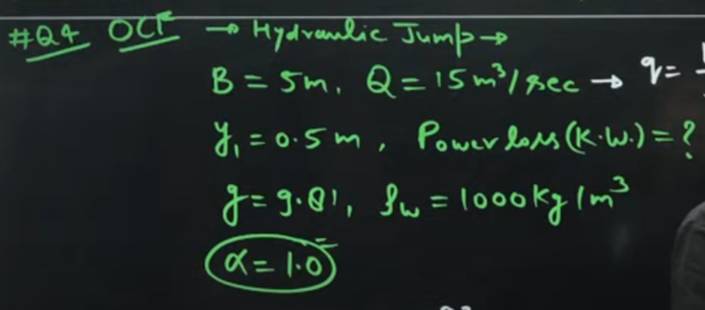 #Q4 OCF → Hydraulic Jump →
B = 5m, Q = 15 m³/sec → q =
y₁ = 0.5 m, Power loss (K.W.) = ?
g = 9.81, ρw = 1000 kg/m³
α = 1.0